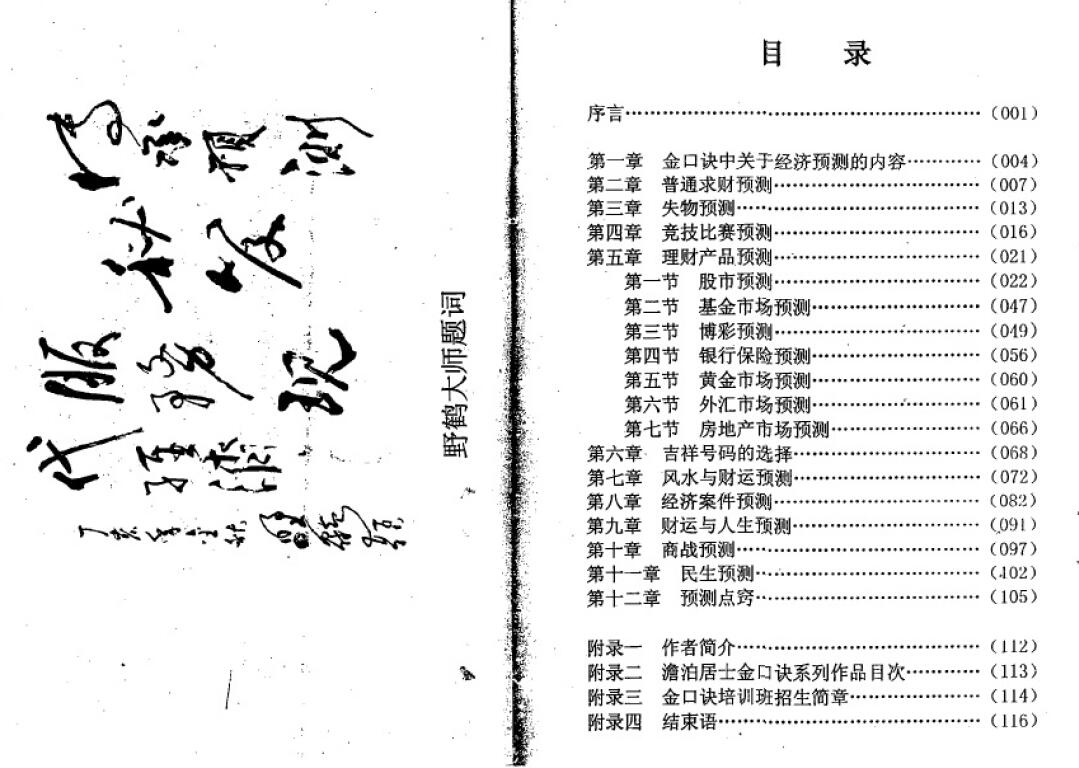 野鹤大师题词
目 录
序言……………………………………………(001)
第一章 金口诀中关于经济预测的内容…………(004)
第二章 普通求财预测……………………………(007)
第三章 失物预测…………………………………(013)
第四章 竞技比赛预测……………………………(016)
第五章 理财产品预测……………………………(021)
第一节 股市预测…………………………………(022)
第二节 基金市场预测……………………………(047)
第三节 博彩预测…………………………………(049)
第四节 银行保险预测……………………………(056)
第五节 黄金市场预测……………………………(060)
第六节 外汇市场预测……………………………(061)
第七节 房地产市场预测…………………………(066)
第六章 吉祥号码的选择…………………………(068)
第七章 风水与财运预测…………………………(072)
第八章 经济案件预测……………………………(082)
第九章 财运与人生预测…………………………(091)
第十章 商战预测…………………………………(097)
第十一章 民生预测………………………………(102)
第十二章 预测点窍………………………………(105)
附录一 作者简介…………………………………(112)
附录二 澹泊居士金口诀系列作品目次…………(113)
附录三 金口诀培训班招生简章…………………(114)
附录四 结束语……………………………………(116)